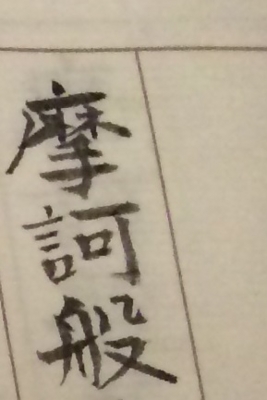 摩訶般